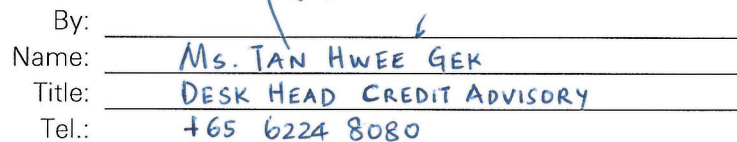 By:
Name: Ms. TAN HWEE GEK
Title: DESK HEAD CREDIT ADVISORY
Tel.: +65 6224 8080